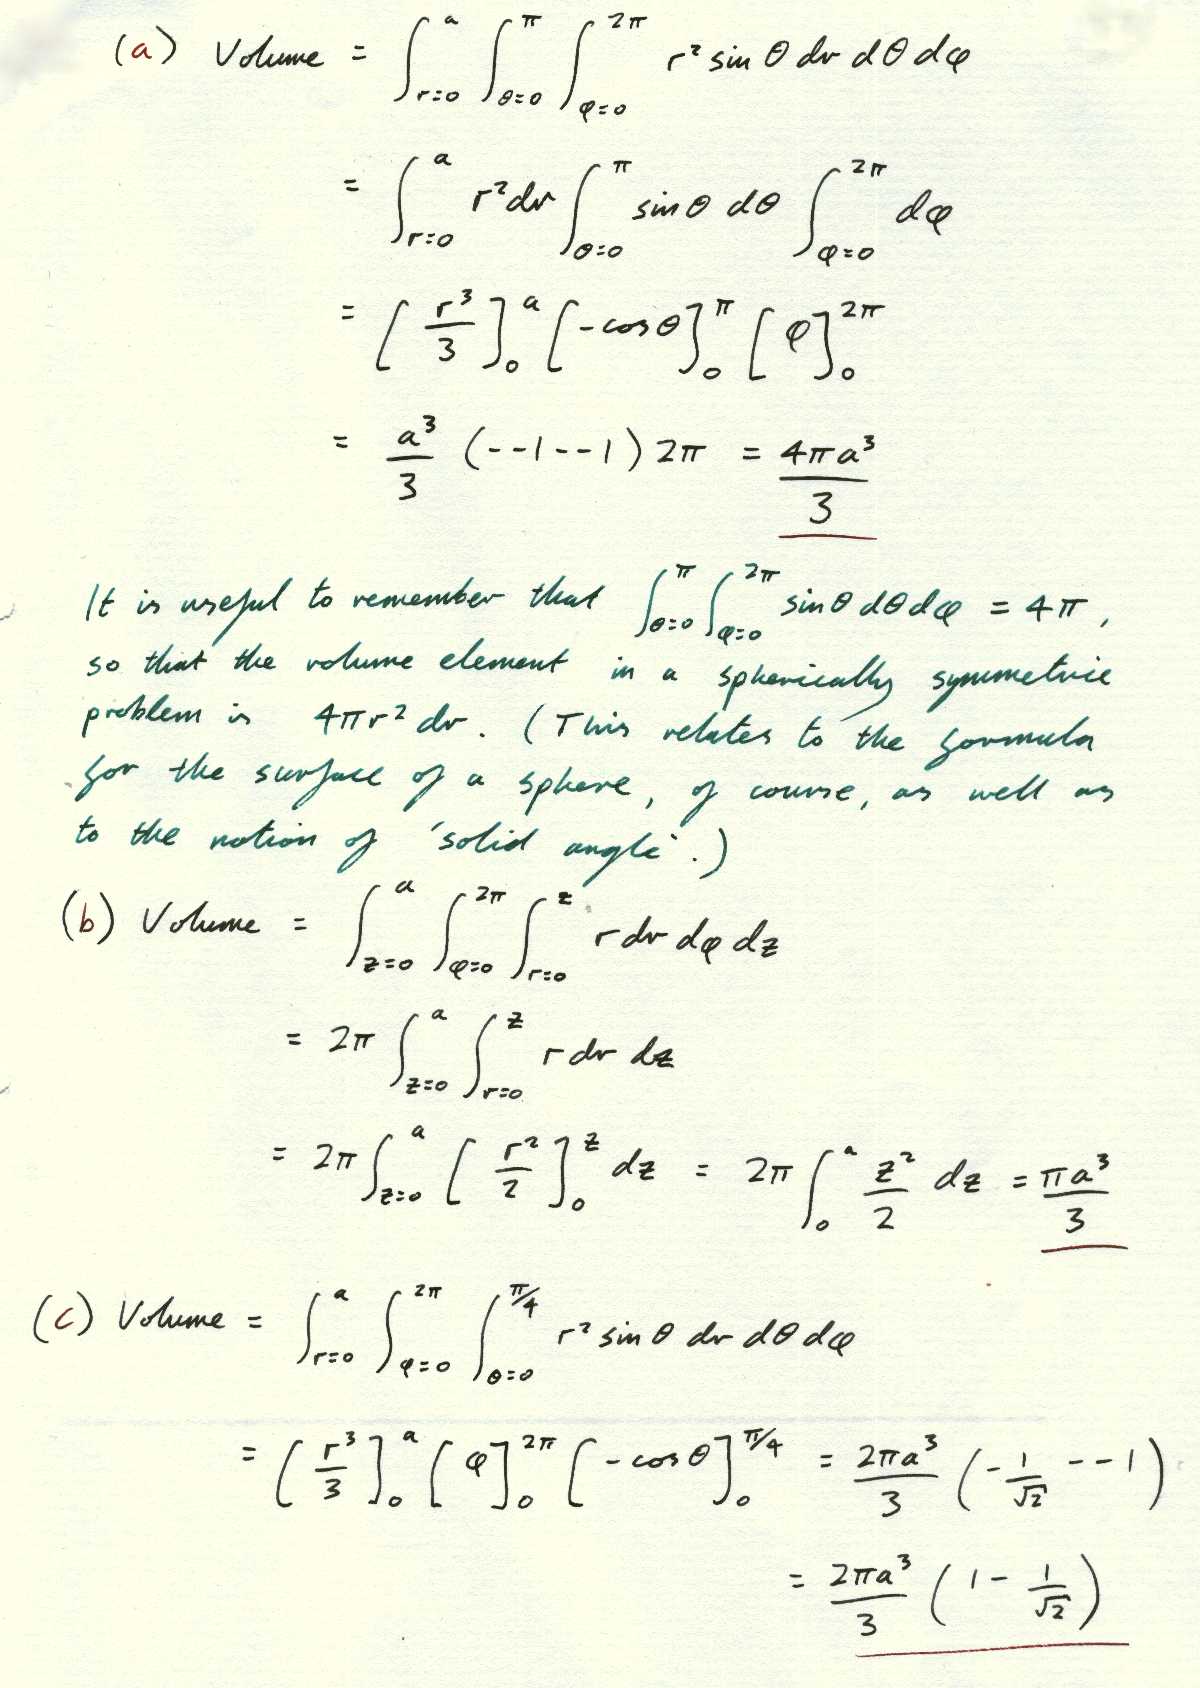 (a) Volume = ∫_{r=0}^{a} ∫_{θ=0}^{π} ∫_{φ=0}^{2π} r² sin θ dr dθ dφ
= ∫_{r=0}^{a} r² dr ∫_{θ=0}^{π} sin θ dθ ∫_{φ=0}^{2π} dφ
= [r³/3]_0^a [-cos θ]_0^π [φ]_0^{2π}
= a³/3 (--1--1) 2π = 4πa³/3
It is useful to remember that ∫_{θ=0}^{π} ∫_{φ=0}^{2π} sin θ dθ dφ = 4π,
so that the volume element in a spherically symmetric
problem is 4πr² dr. (This relates to the formula
for the surface of a sphere, of course, as well as
to the notion of 'solid angle'.)
(b) Volume = ∫_{z=0}^{a} ∫_{φ=0}^{2π} ∫_{r=0}^{z} r dr dφ dz
= 2π ∫_{z=0}^{a} ∫_{r=0}^{z} r dr dz
= 2π ∫_{z=0}^{a} [r²/2]_0^z dz = 2π ∫_0^a z²/2 dz = πa³/3
(c) Volume = ∫_{r=0}^{a} ∫_{φ=0}^{2π} ∫_{θ=0}^{π/4} r² sin θ dr dθ dφ
= [r³/3]_0^a [φ]_0^{2π} [-cos θ]_0^{π/4} = 2πa³/3 (-1/√2 --1)
= 2πa³/3 (1 - 1/√2)